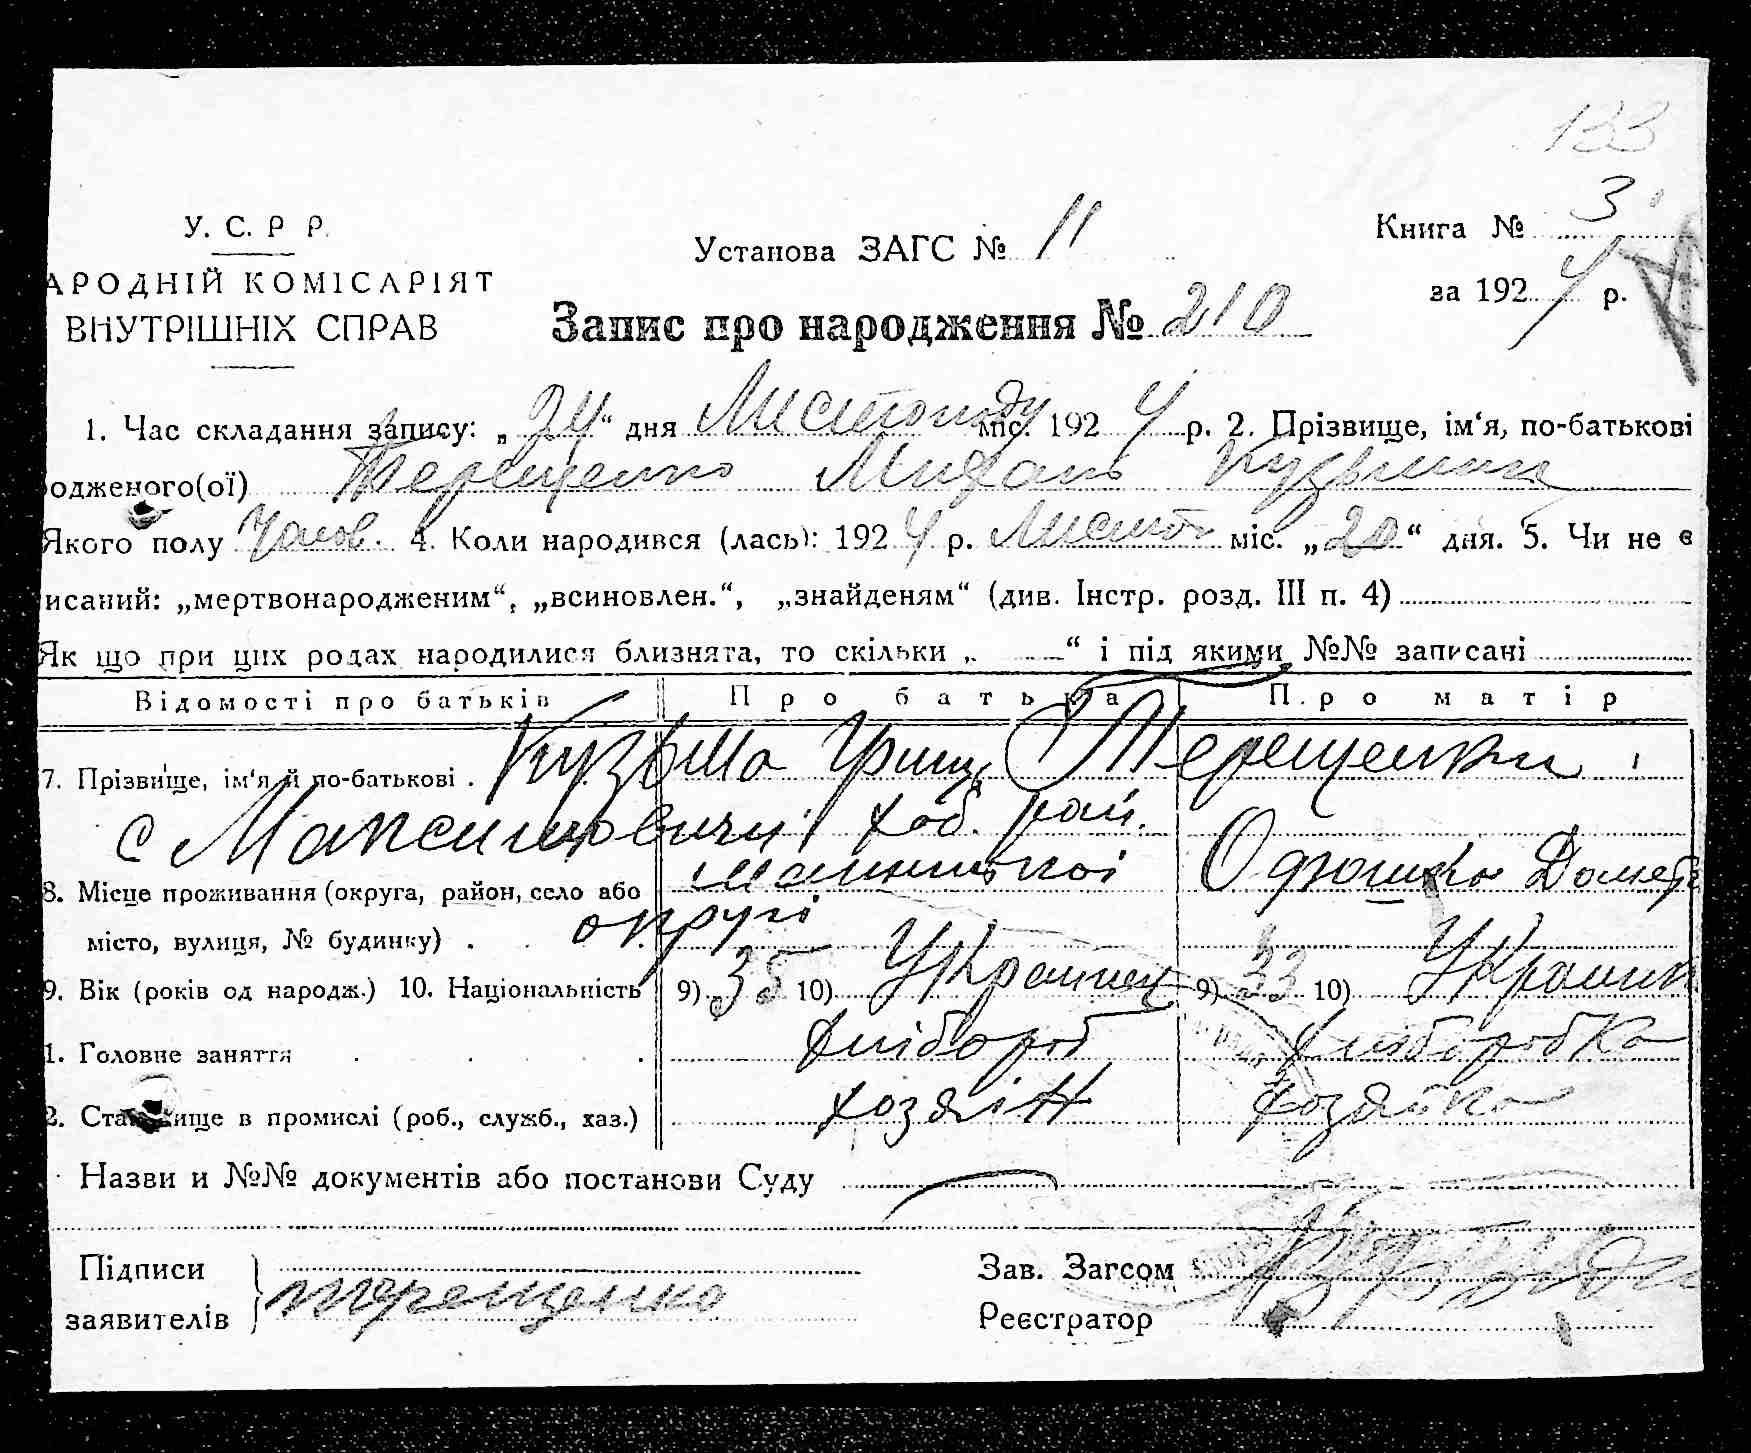 133
У. С. Р Р.
АРОДНІЙ КОМІСАРІЯТ
ВНУТРІШНІХ СПРАВ
Установа ЗАГС № 11
Книга № 3
за 1924 р.
Запис про народження № 210
1. Час складання запису: „24“ дня Листопаду міс. 1924 р. 2. Прізвище, ім‘я, по-батькові
одженого(ої) Терещенко Михань Кузьмин
Якого полу Чолов. 4. Коли народився (лась): 1924 р. Листоп міс. „20“ дня. 5. Чи не є
исаний: „мертвонародженим“, „всиновлен.“, „знайденям“ (див. Інстр. розд. III п. 4)
Як що при цих родах народилися близнята, то скільки „ “ і під якими №№ записані
Відомості про батьків Про батька Про матір
7. Прізвище, ім‘я й по-батькові . Кузьма Гриць Терещенки
с Максимовичи Хаб. рай.
8. Місце проживання (округа, район, село або
місто, вулиця, № будинку) . округі
9. Вік (років од народж.) 10. Національність 9) 35 10) Украинец 9) 33 10) Украинк
1. Головне заняття . . . . Хлібороб Хліборобка
2. Становище в промислі (роб., служб., хаз.) хозяін хозяйка
Назви и №№ документів або постанови Суду
Підписи
заявителів } Терещенко
Зав. Загсом
Реєстратор